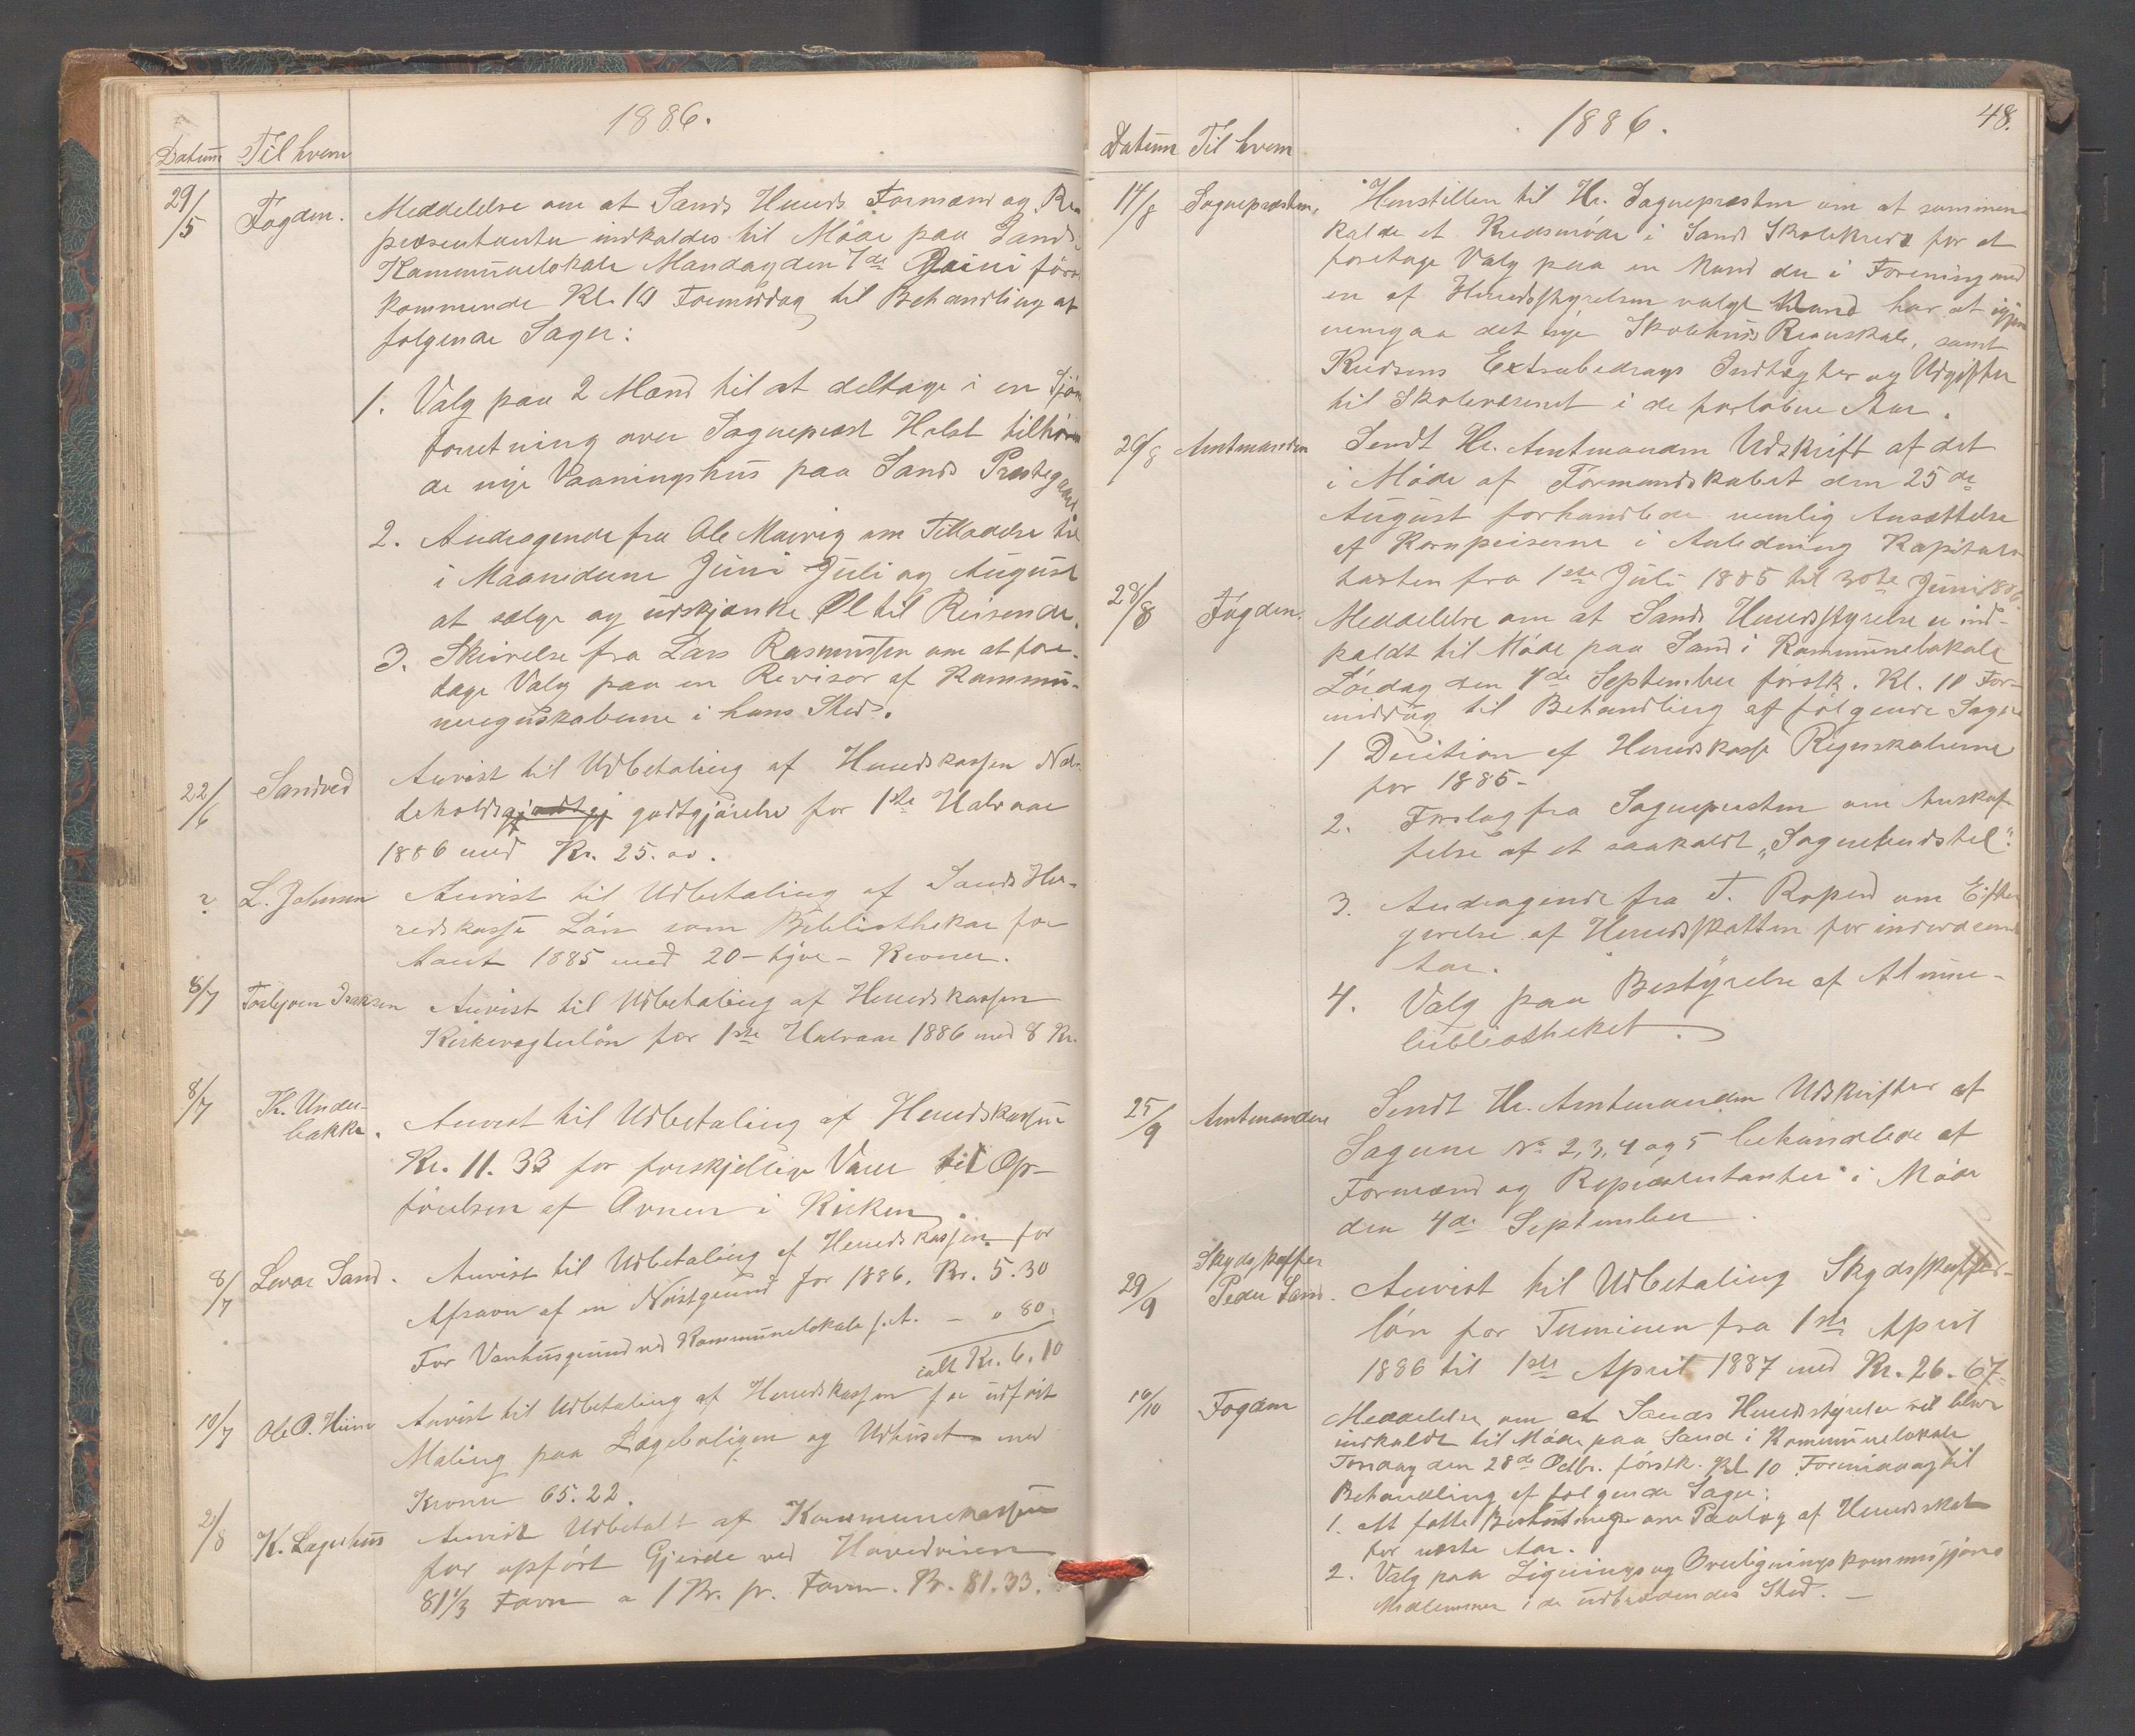 1886.
Datum Til hvem
29/5 Fogden. Meddelelse om at Sands Herreds Formænd og Re-
præsentanter indkaldes til Møde paa Sands
Kommunelokale Mandag den 7de Juni først-
kommende Kl. 10 Formiddag til Behandling af
følgende Sager:
1. Valg paa 2 Mænd til at deltage i en
Forretning over Sognepræst Holst tilhøren-
de nye Vaaningshus paa Sands Prestegaard.
2. Andragende fra Ole Maurig om Tilladelse til
i Maanederne Juni Juli og August
at sælge og udskjænke Øl til Reisende.
3. Skrivelse fra Lars Rasmussen om at fore-
tage Valg paa en Revisor af Kommu-
neregnskaberne i hans Sted.
22/6 Sandved Anvist til Udbetaling af Herredskassen
godtgjørelse for 1ste Halvaar
1886 med Kr. 25. 00.
L. Johnsen Anvist til Udbetaling af Sands Her-
redskasse Løn som Bibliothekar for
Aaret 1885 med 20 - tyve - Kroner.
8/7 Torbjørn Isaksen Anvist til Udbetaling af Herredskassen
Kirkevægterløn for 1ste Halvaar 1886 med 8 Kr.
8/7 Th. Under-
bakke. Anvist til Udbetaling af Herredskassen
Kr. 11. 33 for forskjellige Varer til Op-
førelsen af Ovnen i Kirken.
8/7 Levar Sand. Anvist til Udbetaling af Herredskassen for
Afsavn af en Nøstgrund for 1886. Kr. 5. 30
For Vanhusgrund ved Kommunelokale f. A. - " 80.
ialt Kr. 6. 10
10/7 Ole O. Hiim Anvist til Udbetaling af Herredskassen for udført
Maling paa Lægeboligen og Udhuset med
Kroner 65. 22.
2/8 K. Lagerhus Anvist Udbetalt af Kommunekassen
for opført Gjerde ved Hovedveien
81 1/3 Favn a 1 Kr. pr. Favn. Kr. 81. 33.
1886. 48.
Datum Til hvem
14/8 Sognepræsten. Henstillen til Hr. Sognepræsten om at sammen-
kalde et Kredsmøde i Sands Skolekreds for at
foretage Valg paa en Mand der i Forening med
en af Herredsstyrelsen valgt Mand har at igjen-
nemgaa det nye Skolehus Regnskab, samt
Kredsens Extrabidrags Indtægter og Udgifter
til Skolevæsenet i de forløbne Aar.
26/8 Amtmanden Sendt Hr. Amtmanden Udskrift af det
i Møde af Formandskabet den 25de
August forhandlede nemlig Ansættelse
af Kornpriserne i Anledning Kapitels-
taxten fra 1ste Juli 1885 til 30te Juni 1886.
28/8 Fogden. Meddelelse om at Sands Herredsstyrelse er ind-
kaldt til Møde paa Sand i Kommunelokale
Lørdag den 4de September førstk. Kl. 10 For-
middag til Behandling af følgende Sager
1 Decition af Herredskasse Regnskaberne
for 1885 -
2. Forslag fra Sognepresten om Anskaf-
felse af et saakaldt
3. Andragende fra T. Roperd om Efter-
givelse af Herredsskatten for indeværende
Aar.
4. Valg paa Bestyrelse af Almue-
bibliotheket.
25/9 Amtmanden Sendt Hr. Amtmanden Udskrifter af
Sagerne No 2, 3, 4 og 5 behandlede af
Formænd og Repræsentanter i Møde
den 4de September.
29/9 Skydsskaffer
Peder Sand. Anvist til Udbetaling Skydsskaffer-
løn for Terminen fra 1ste April
1886 til 1ste April 1887 med Kr. 26. 67.
16/10 Fogden Meddelelse om at Sands Herredsstyrelse vil blive
indkaldt til Møde paa Sand i Kommunelokale
Torsdag den 28de Octbr. førstk. Kl. 10 Formiddag til
Behandling af følgende Sager:
1. At fatte Beslutninger om Paalæg af Herredsskat
for næste Aar.
2. Valg paa Lignings og Overligningskommissions
Medlemmer i de udtrædendes Sted. -